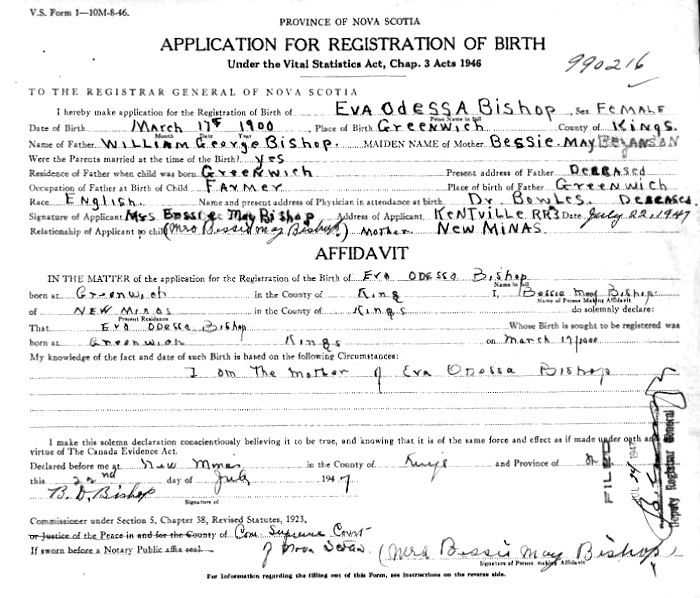 V.S. Form 1—10M-8-46.
PROVINCE OF NOVA SCOTIA
APPLICATION FOR REGISTRATION OF BIRTH
Under the Vital Statistics Act, Chap. 3 Acts 1946
990216
TO THE REGISTRAR GENERAL OF NOVA SCOTIA
I hereby make application for the Registration of Birth of Eva Odessa Bishop, Sex Female
Print Name in full
Date of Birth March 17th 1900, Place of Birth Greenwich County of Kings.
Month Date Year
Name of Father William George Bishop. MAIDEN NAME of Mother Bessie May Bezanson
Were the Parents married at the time of the Birth? yes
Residence of Father when child was born Greenwich Present address of Father Deceased
Occupation of Father at Birth of Child Farmer Place of birth of Father Greenwich
Race English Name and present address of Physician in attendance at birth Dr Bowles. Deceased
Signature of Applicant Mrs Bessie May Bishop Address of Applicant Kentville RR3 Date July 22, 1947
Relationship of Applicant to child (Mrs Bessie May Bishop) Mother New Minas.
AFFIDAVIT
IN THE MATTER of the application for the Registration of the Birth of Eva Odessa Bishop
Name in full
born at Greenwich in the County of King I, Bessie May Bishop
Name of Person Making Affidavit
of New Minas in the County of Kings do solemnly declare:
Present Residence
That Eva Odessa Bishop Whose Birth is sought to be registered was
born at Greenwich Kings on March 17/1900
My knowledge of the fact and date of such Birth is based on the following Circumstances:
I am The mother of Eva Odessa Bishop
I make this solemn declaration conscientiously believing it to be true, and knowing that it is of the same force and effect as if made under oath and
virtue of The Canada Evidence Act.
Declared before me at New Minas in the County of Kings and Province of
this 22nd day of July 1947
B. D. Bishop
Signature of
Commissioner under Section 5, Chapter 38, Revised Statutes, 1923,
or Justice of the Peace in and for the County of Com. Supreme Court
If sworn before a Notary Public affix seal. of Nova Scotia (Mrs Bessie May Bishop)
Signature of Person making Affidavit
For Information regarding the filling out of this Form, see instructions on the reverse side.
FILED
24 1947
Deputy Registrar General